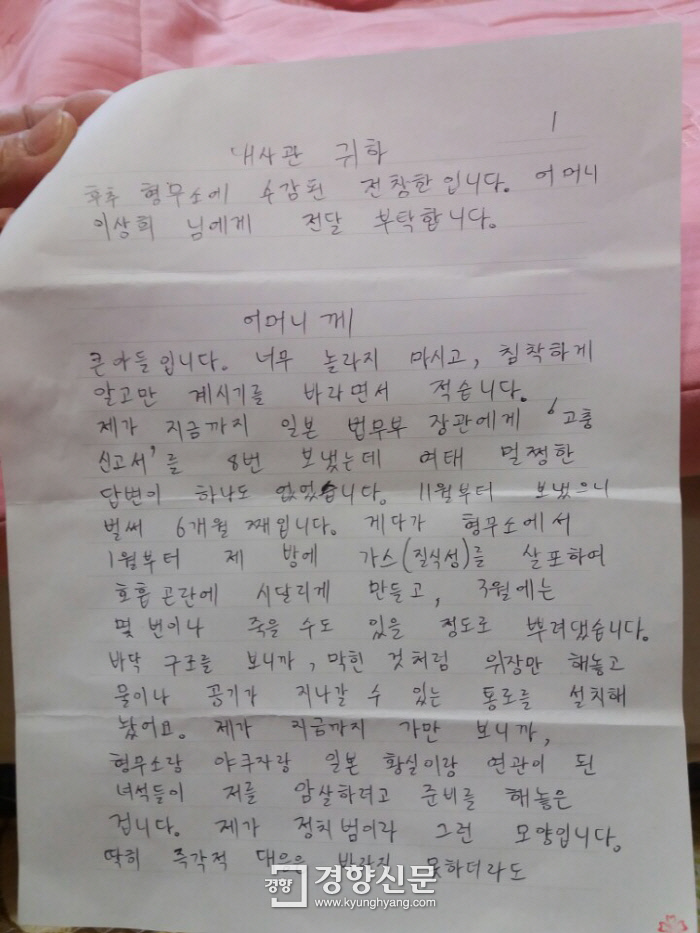 1
대사관 귀하
후추 형무소에 수감된 전창한입니다. 어머니
이상희 님에게 전달 부탁합니다.
어머니께
큰아들입니다. 너무 놀라지 마시고, 침착하게
알고만 계시기를 바라면서 적습니다.
제가 지금까지 일본 법무부 장관에게 '고충
신고서'를 8번 보냈는데 여태 멀쩡한
답변이 하나도 없었습니다. 11월부터 보냈으니
벌써 6개월 째입니다. 게다가 형무소에서
1월부터 제 방에 가스(질식성)를 살포하여
호흡곤란에 시달리게 만들고, 3월에는
몇 번이나 죽을 수도 있을 정도로 뿌려댔습니다.
바닥 구조를 보니까, 막힌 것처럼 위장만 해놓고
물이나 공기가 지나갈 수 있는 통로를 설치해
놨어요. 제가 지금까지 가만 보니까,
형무소랑 야쿠자랑 일본 황실이랑 연관이 된
녀석들이 저를 암살하려고 준비를 해놓은
겁니다. 제가 정치범이라 그런 모양입니다.
딱히 즉각적 대응을 바라지 못하더라도
경향 경향신문
www.kyunghyang.com